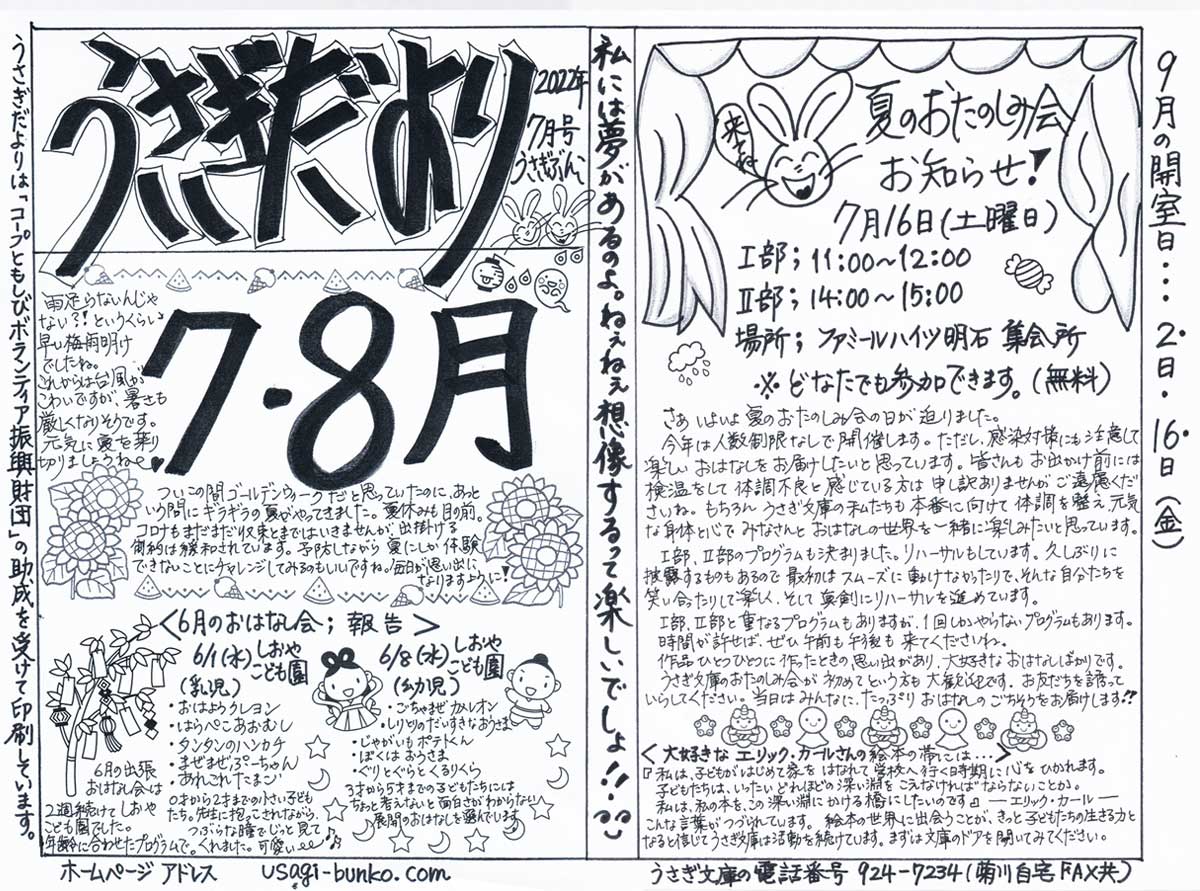 うさぎだよりは「コープともしびボランティア振興財団」の助成を受けて印刷しています。
うさぎだより
2022年
7月号
うさぎぶんこ
雨足らないんじゃ
ない?!というくらい
早い梅雨明け
でしたね。
これからは台風が
こわいですが、暑さも
厳しくなりそうです。
元気に夏を乗り
切りましょうね〜♥
7・8月
ついこの間ゴールデンウィークだと思っていたのに、あっと
いう間にギラギラの夏がやってきました。夏休みも目の前。
コロナもまだまだ収束とまではいきませんが、出掛ける
制約は緩和されています。予防しながら夏にしか体験
できないことにチャレンジしてみるのもいいですね。毎日が思い出に
なりますように!
<6月のおはなし会;報告>
6/1(水)しおや
こども園
(乳児)
・おはようクレヨン
・はらぺこあおむし
・タンタンのハンカチ
・まぜまぜぷーちゃん
・あれこれたまご
0才から2才までの小さい子ども
たち。先生に抱っこされながら、
つぶらな瞳でじっと見て
くれました。可愛い
6/8(水)しおや
こども園
(幼児)
・ごちゃまぜカメレオン
・しりとりのだいすきなおうさま
・じゃがいもポテトくん
・ぼくはおうさま
・ぐりとぐらとくるりくら
3才から5才までの子どもたちには
ちょっと考えないと面白さがわからない
展開のおはなしを選んでします!
6月の出張
おはなし会は
2週続けてしおや
こども園でした。
年齢に合わせたプログラムで。
ホームページ アドレス usagi-bunko.com
私には夢があるのよ。ねぇねぇ想像するって楽しいでしょ!!
来てね
夏のおたのしみ会
お知らせ!
7月16日(土曜日)
Ⅰ部;11:00〜12:00
Ⅱ部;14:00〜15:00
場所;ファミールハイツ明石 集会所
※どなたでも参加できます。(無料)
さあいよいよ夏のおたのしみ会の日が迫りました。
今年は人数制限なしで開催します。ただし、感染対策にも注意して
楽しいおはなしをお届けしたいと思っています。皆さんもお出かけ前には
検温をして体調不良と感じている方は申し訳ありませんがご遠慮くだ
さいね。もちろんうさぎ文庫の私たちも本番に向けて体調を整え、元気
な身体と心でみなさんとおはなしの世界を一緒に楽しみたいと思っています。
Ⅰ部、Ⅱ部のプログラムも決まりました。リハーサルもしています。久しぶりに
披露するものもあるので最初はスムーズに動けなかったりで、そんな自分たちを
笑い合ったりして楽しく、そして真剣にリハーサルを進めています。
Ⅰ部、Ⅱ部と重なるプログラムもありますが、1回しかやらないプログラムもあります。
時間が許せば、ぜひ午前も午後も来てくださいね。
作品ひとつひとつに作ったときの思い出があり、大好きなおはなしばかりです。
うさぎ文庫のおたのしみ会が初めてという方も大歓迎です。お友だちを誘って
いらしてください。当日はみんなに、たっぷりおはなしのごちそうをお届けします!!
<大好きなエリック・カールさんの絵本の帯には…>
『私は、子どもがはじめて家をはなれて学校へ行く時期に心をひかれます。
子どもたちは、いったいどれほどの深い淵をこえなければならないことか。
私は、私の本を、この深い淵にかける橋にしたいのです』―エリック・カール―
こんな言葉がつづられています。絵本の世界に出会うことが、きっと子どもたちの生きる力と
なると信じてうさぎ文庫は活動を続けています。まずは文庫のドアを開いてみてください。
うさぎ文庫の電話番号 924-7234(菊川自宅FAX共)
9月の開室日…2日・16日(金)